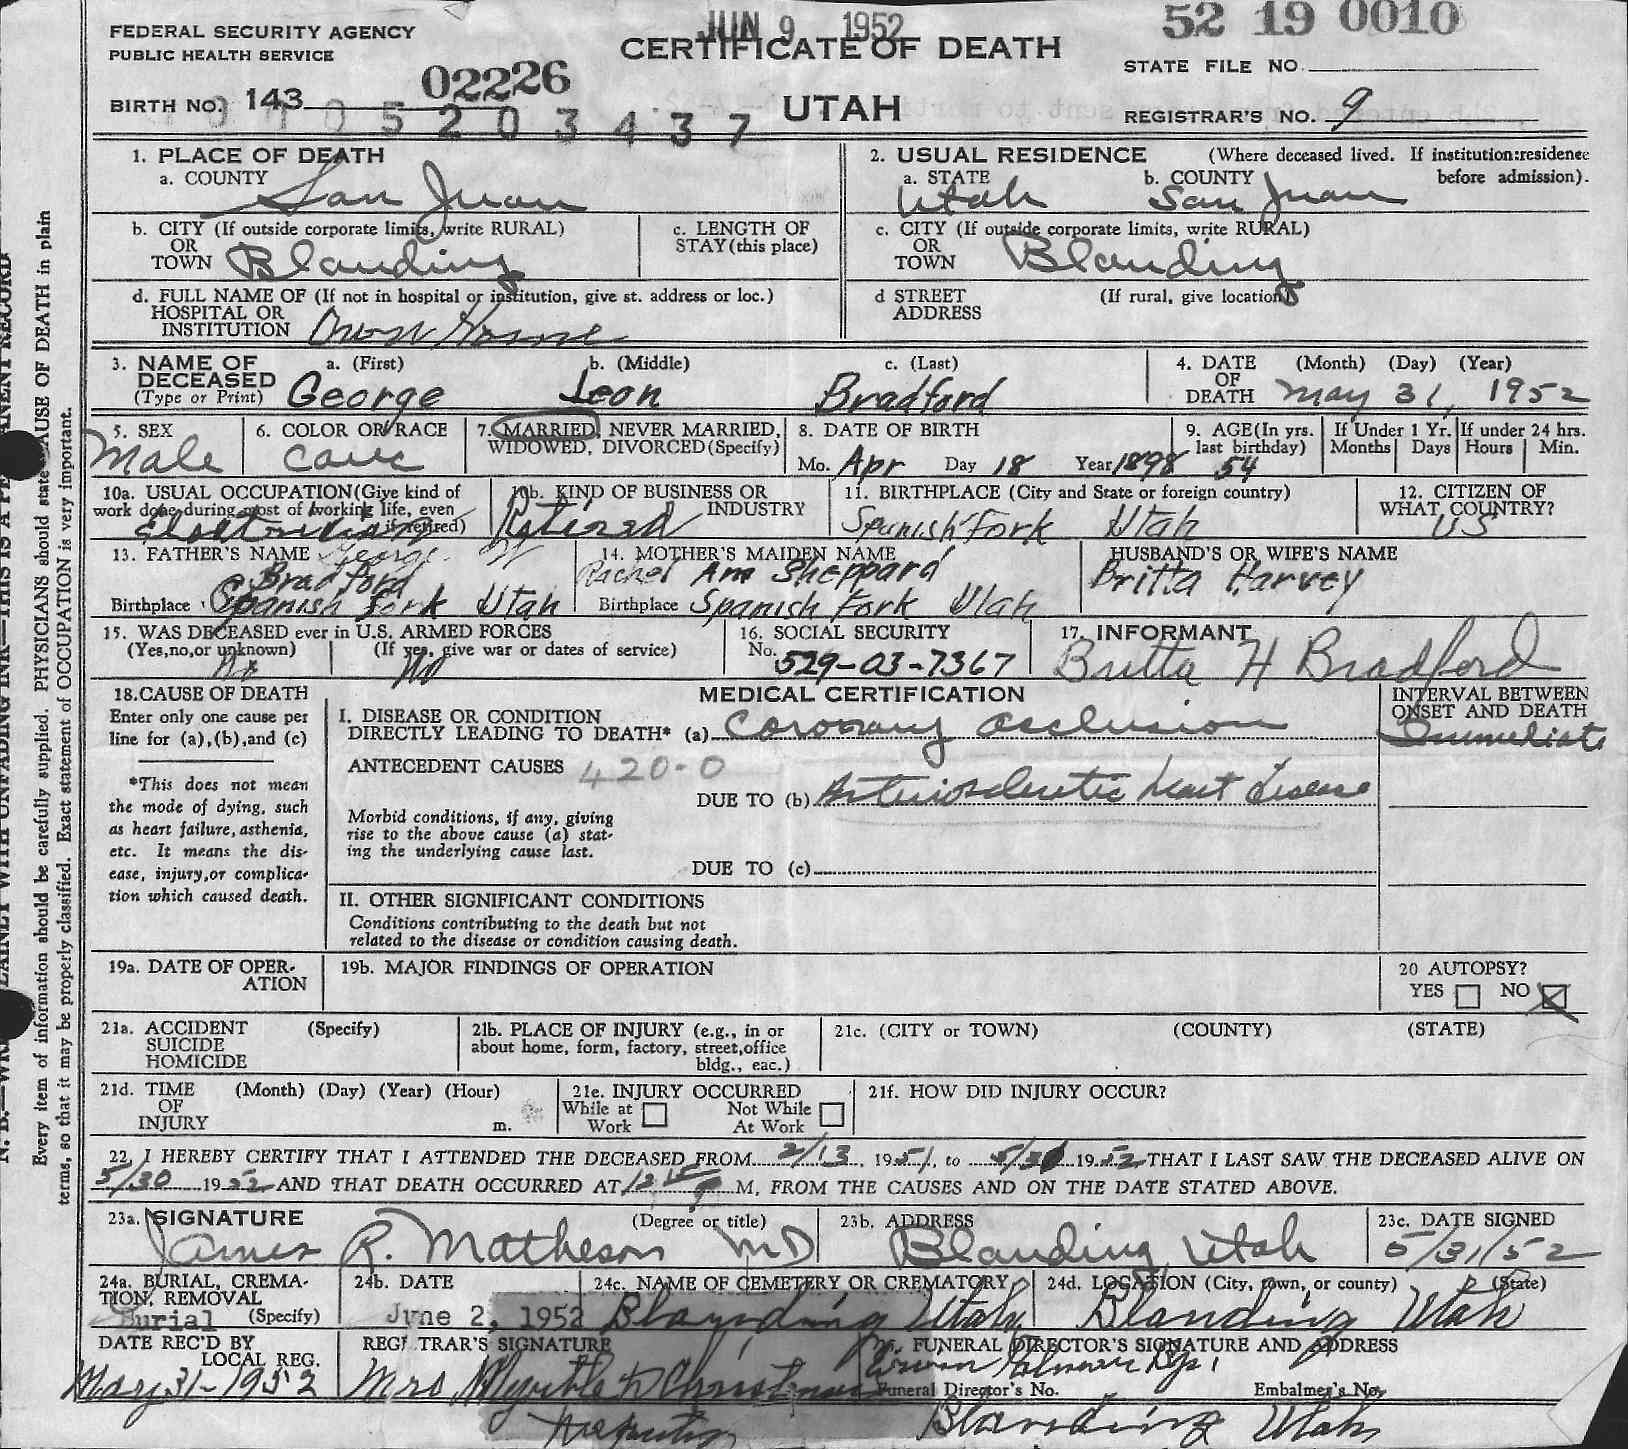 JUN 9 1952
52 19 0010
FEDERAL SECURITY AGENCY
PUBLIC HEALTH SERVICE
CERTIFICATE OF DEATH
STATE FILE NO.
02226
BIRTH NO. 143
UTAH
REGISTRAR'S NO. 9
5 2 0 3 4 3 7
1. PLACE OF DEATH
a. COUNTY San Juan
2. USUAL RESIDENCE (Where deceased lived. If institution:residence before admission).
a. STATE Utah b. COUNTY San Juan
b. CITY (If outside corporate limits, write RURAL)
OR
TOWN Blanding
c. LENGTH OF
STAY(this place)
c. CITY (If outside corporate limits, write RURAL)
OR
TOWN Blanding
d. FULL NAME OF (If not in hospital or institution, give st. address or loc.)
HOSPITAL OR
INSTITUTION Own Home
d STREET (If rural, give location)
ADDRESS
3. NAME OF a. (First) b. (Middle) c. (Last)
DECEASED
(Type or Print) George Leon Bradford
4. DATE (Month) (Day) (Year)
OF
DEATH May 31, 1952
5. SEX
Male
6. COLOR OR RACE
Cauc
7. MARRIED, NEVER MARRIED,
WIDOWED, DIVORCED(Specify)
8. DATE OF BIRTH
Mo. Apr Day 18 Year 1898
9. AGE(In yrs.
last birthday)
54
If Under 1 Yr.
Months Days
If under 24 hrs.
Hours Min.
10a. USUAL OCCUPATION(Give kind of
work done during most of working life, even
if retired)
Electrician
10b. KIND OF BUSINESS OR
INDUSTRY
Retired
11. BIRTHPLACE (City and State or foreign country)
Spanish Fork Utah
12. CITIZEN OF
WHAT COUNTRY?
US
13. FATHER'S NAME George W
Bradford
Birthplace Spanish Fork Utah
14. MOTHER'S MAIDEN NAME
Rachel Ann Sheppard
Birthplace Spanish Fork Utah
HUSBAND'S OR WIFE'S NAME
Britta Harvey
15. WAS DECEASED ever in U.S. ARMED FORCES
(Yes,no,or unknown) (If yes, give war or dates of service)
No No
16. SOCIAL SECURITY
No. 529-03-7367
17. INFORMANT
Britta H Bradford
18.CAUSE OF DEATH
Enter only one cause per
line for (a),(b),and (c)
*This does not mean
the mode of dying, such
as heart failure, asthenia,
etc. It means the dis-
ease, injury,or complica-
tion which caused death.
MEDICAL CERTIFICATION
I. DISEASE OR CONDITION
DIRECTLY LEADING TO DEATH* (a) Coronary occlusion
INTERVAL BETWEEN
ONSET AND DEATH
Immediate
ANTECEDENT CAUSES 420-0
DUE TO (b) Arteriosclerotic heart disease
Morbid conditions, if any, giving
rise to the above cause (a) stat-
ing the underlying cause last.
DUE TO (c)
II. OTHER SIGNIFICANT CONDITIONS
Conditions contributing to the death but not
related to the disease or condition causing death.
19a. DATE OF OPER-
ATION
19b. MAJOR FINDINGS OF OPERATION
20 AUTOPSY?
YES NO X
21a. ACCIDENT (Specify)
SUICIDE
HOMICIDE
21b. PLACE OF INJURY (e.g., in or
about home, form, factory, street,office
bldg., eac.)
21c. (CITY or TOWN) (COUNTY) (STATE)
21d. TIME (Month) (Day) (Year) (Hour)
OF
INJURY m.
21e. INJURY OCCURRED
While at Work Not While At Work
21f. HOW DID INJURY OCCUR?
22. I HEREBY CERTIFY THAT I ATTENDED THE DECEASED FROM 2/13, 1951, to 5/30 1952 THAT I LAST SAW THE DECEASED ALIVE ON
5/30 1952 AND THAT DEATH OCCURRED AT 12 15 M, FROM THE CAUSES AND ON THE DATE STATED ABOVE.
23a. SIGNATURE (Degree or title)
James R. Matheson MD
23b. ADDRESS
Blanding Utah
23c. DATE SIGNED
5/31/52
24a. BURIAL, CREMA-
TION, REMOVAL
(Specify)
Burial
24b. DATE
June 2, 1952
24c. NAME OF CEMETERY OR CREMATORY
Blanding Utah
24d. LOCATION (City, town, or county) (State)
Blanding Utah
DATE REC'D BY
LOCAL REG.
May 31-1952
REGISTRAR'S SIGNATURE
Mrs Myrtle
Deputy
FUNERAL DIRECTOR'S SIGNATURE AND ADDRESS
Funeral Director's No. Embalmer's No.
Blanding Utah
N. B.—WRITE PLAINLY WITH UNFADING INK—THIS IS A PERMANENT RECORD
Every item of information should be carefully supplied. PHYSICIANS should state CAUSE OF DEATH in plain
terms, so that it may be properly classified. Exact statement of OCCUPATION is very important.